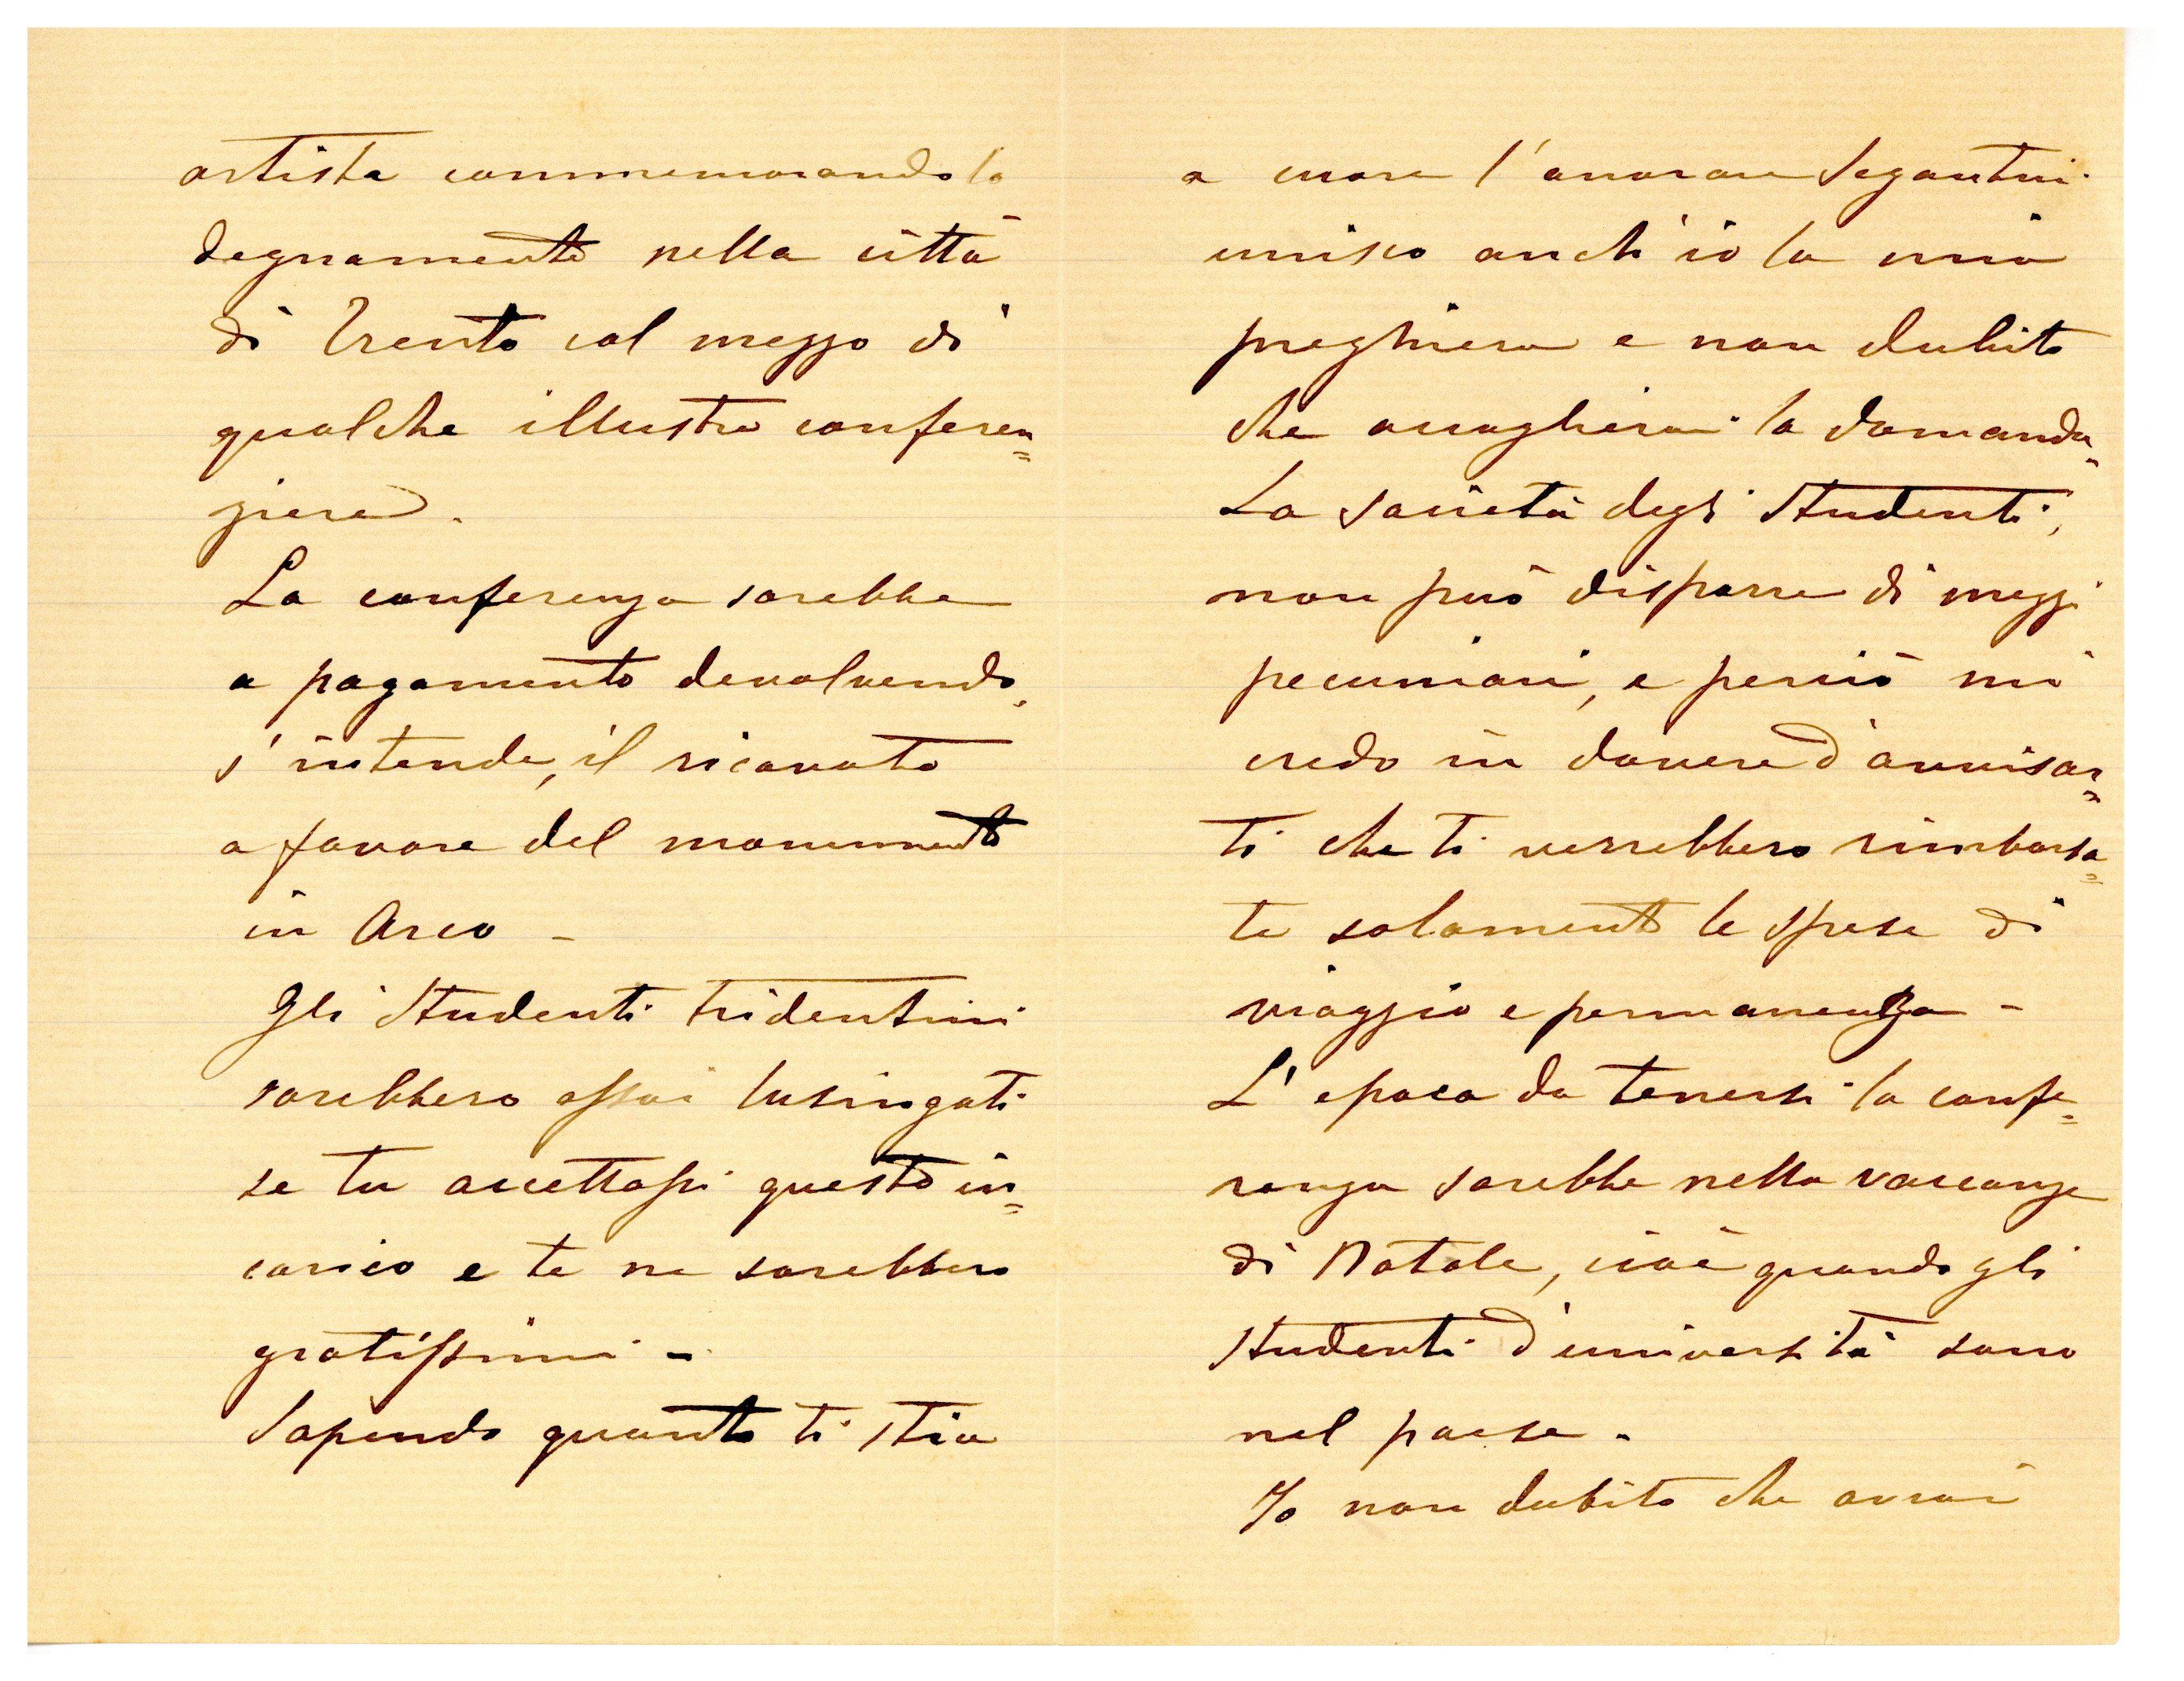 artista commemorandolo
degnamente nella città
di Trento col mezzo di
qualche illustre conferen=
ziere.
La conferenza sarebbe
a pagamento devolvendo,
s'intende, il ricavato
a favore del monumento
in Arco -
Gli studenti tridentini
sarebbero assai lusingati
se tu accettassi questo in=
carico e te ne sarebbero
gratissimi -
Sapendo quanto ti stia
a cuore l'onorare Segantini
unisco anch'io la mia
preghiera e non dubito
che accoglierai la domanda.
La società degli Studenti,
non può disporre di mezzi
pecuniari, e perciò mi
credo in dovere d'avvisar=
ti che ti verrebbero rimborsa=
te solamente le spese di
viaggio e permanenza -
L'epoca da tenersi la confe=
renza sarebbe nelle vaccanze
di Natale, cioè quando gli
studenti d'università sono
nel paese.
Io non dubito che avrai